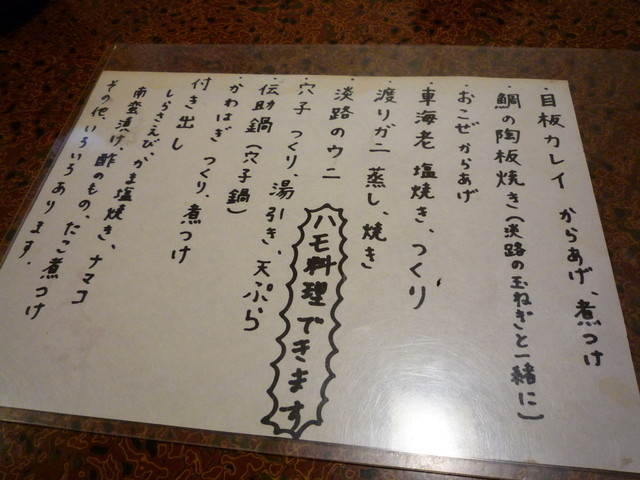 ・目板カレイ からあげ、煮つけ
・鯛の陶板焼き(淡路の玉ねぎと一緒に)
・おこぜからあげ
・車海老 塩焼き、つくり
・渡りガニ 蒸し、焼き
・淡路のウニ
・穴子 つくり、湯引き、天ぷら
・伝助鍋(穴子鍋)
・かわはぎ つくり、煮つけ
ハモ料理できます
付き出し
しらさえび、がま塩焼き、ナマコ
南蛮漬け、酢のもの、たこ煮つけ
その他、いろいろあります.